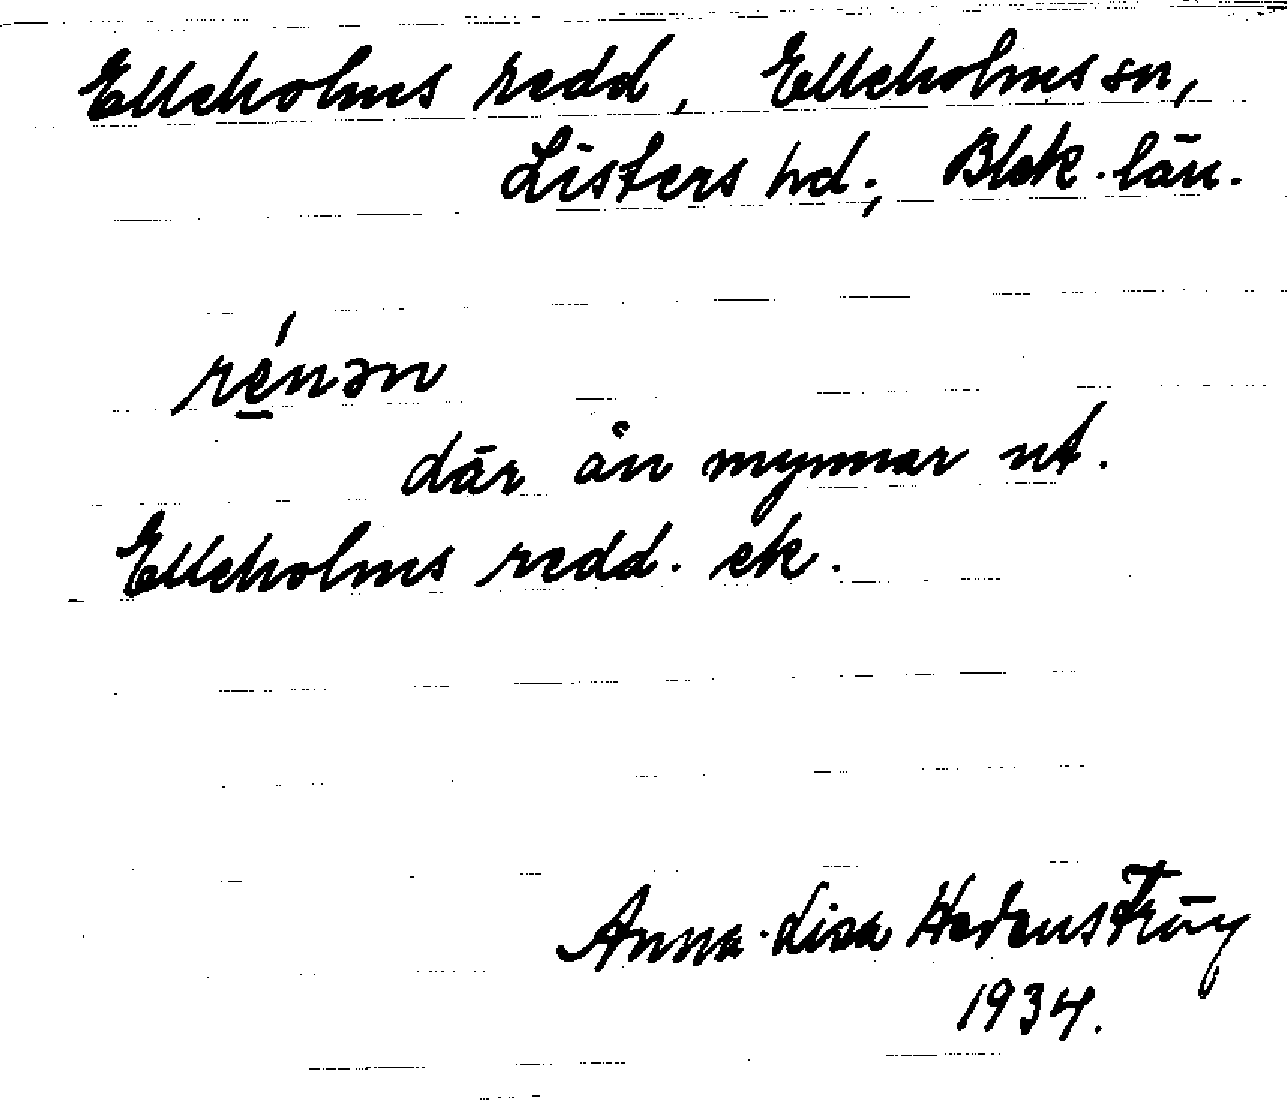 Elleholms redd, Elleholms sn,
Listers hd., Blek. län.
rénən
där ån mynnar ut.
Elleholms redd. ek.
Anna-Lisa Hedenström
1934.